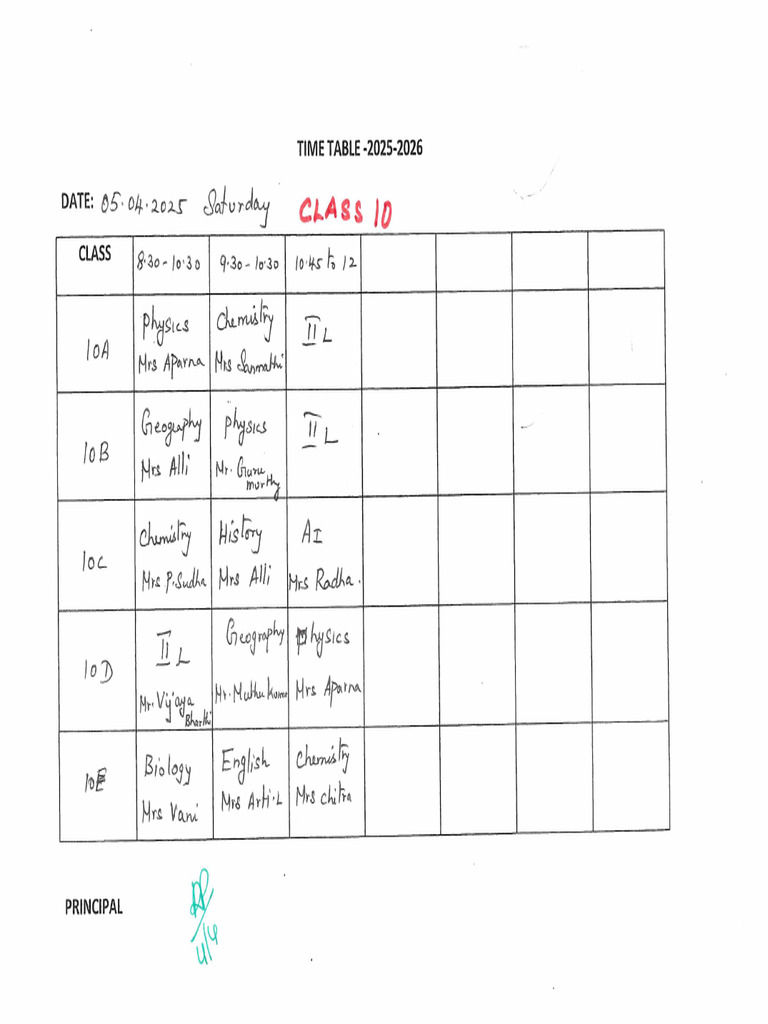 TIME TABLE -2025-2026
DATE: 05.04.2025 Saturday CLASS 10
CLASS 8.30 - 10.30 9.30 - 10.30 10.45 to 12
10A Physics Chemistry II L
Mrs Aparna Mrs Sanmathi
10B Geography Physics II L
Mrs Alli Mr. Guru
murthy
10C Chemistry History AI
Mrs P.Sudha Mrs Alli Mrs Radha.
10D II L Geography Physics
Mr. Vijaya Mr. Muthu Kumar Mrs Aparna
Bharthi
10E Biology English Chemistry
Mrs Vani Mrs Arti.L Mrs Chitra
PRINCIPAL
4/4